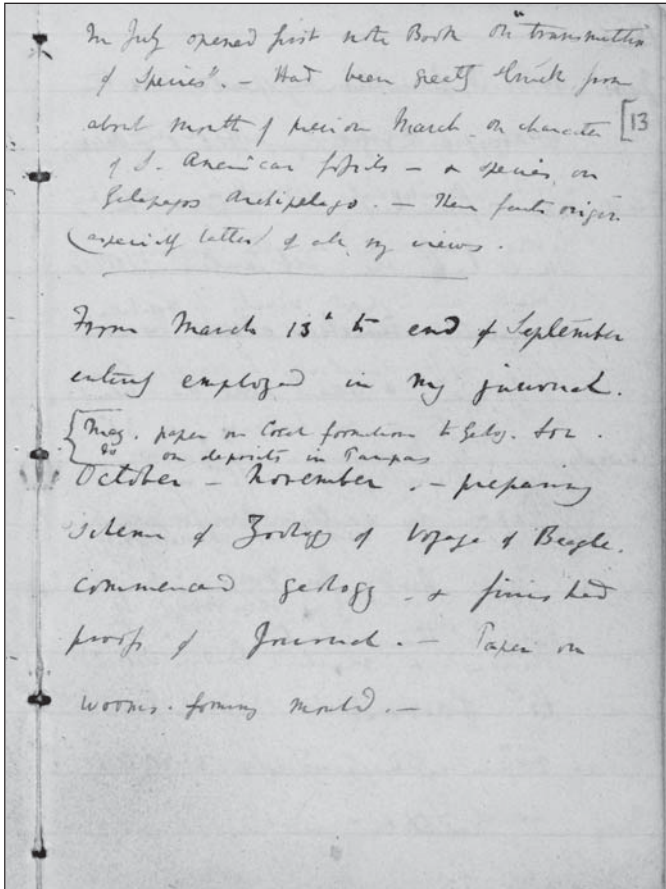 In July opened first note Book on "transmutation
of Species". — Had been greatly struck from
about month of previous March on character [13
of S. American fossils — & species on
Galapagos Archipelago. — These facts origin
(especially latter) of all my views.
From March 13th to end of September
entirely employed in my journal.
{May. paper on Coral formations to Geolog. Soc.
do on deposits in Pampas
October — November. — preparing
scheme of Zoology of Voyage of Beagle.
commenced geology & finished
proofs of Journal. — Paper on
worms. forming mould. —